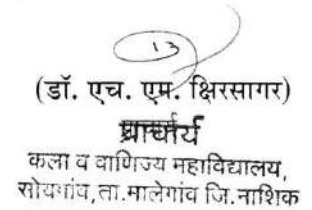 13
(डॉ. एच. एम. क्षिरसागर)
प्राचार्य
कला व वाणिज्य महाविद्यालय,
सोयगांव,ता.मालेगांव जि.नाशिक